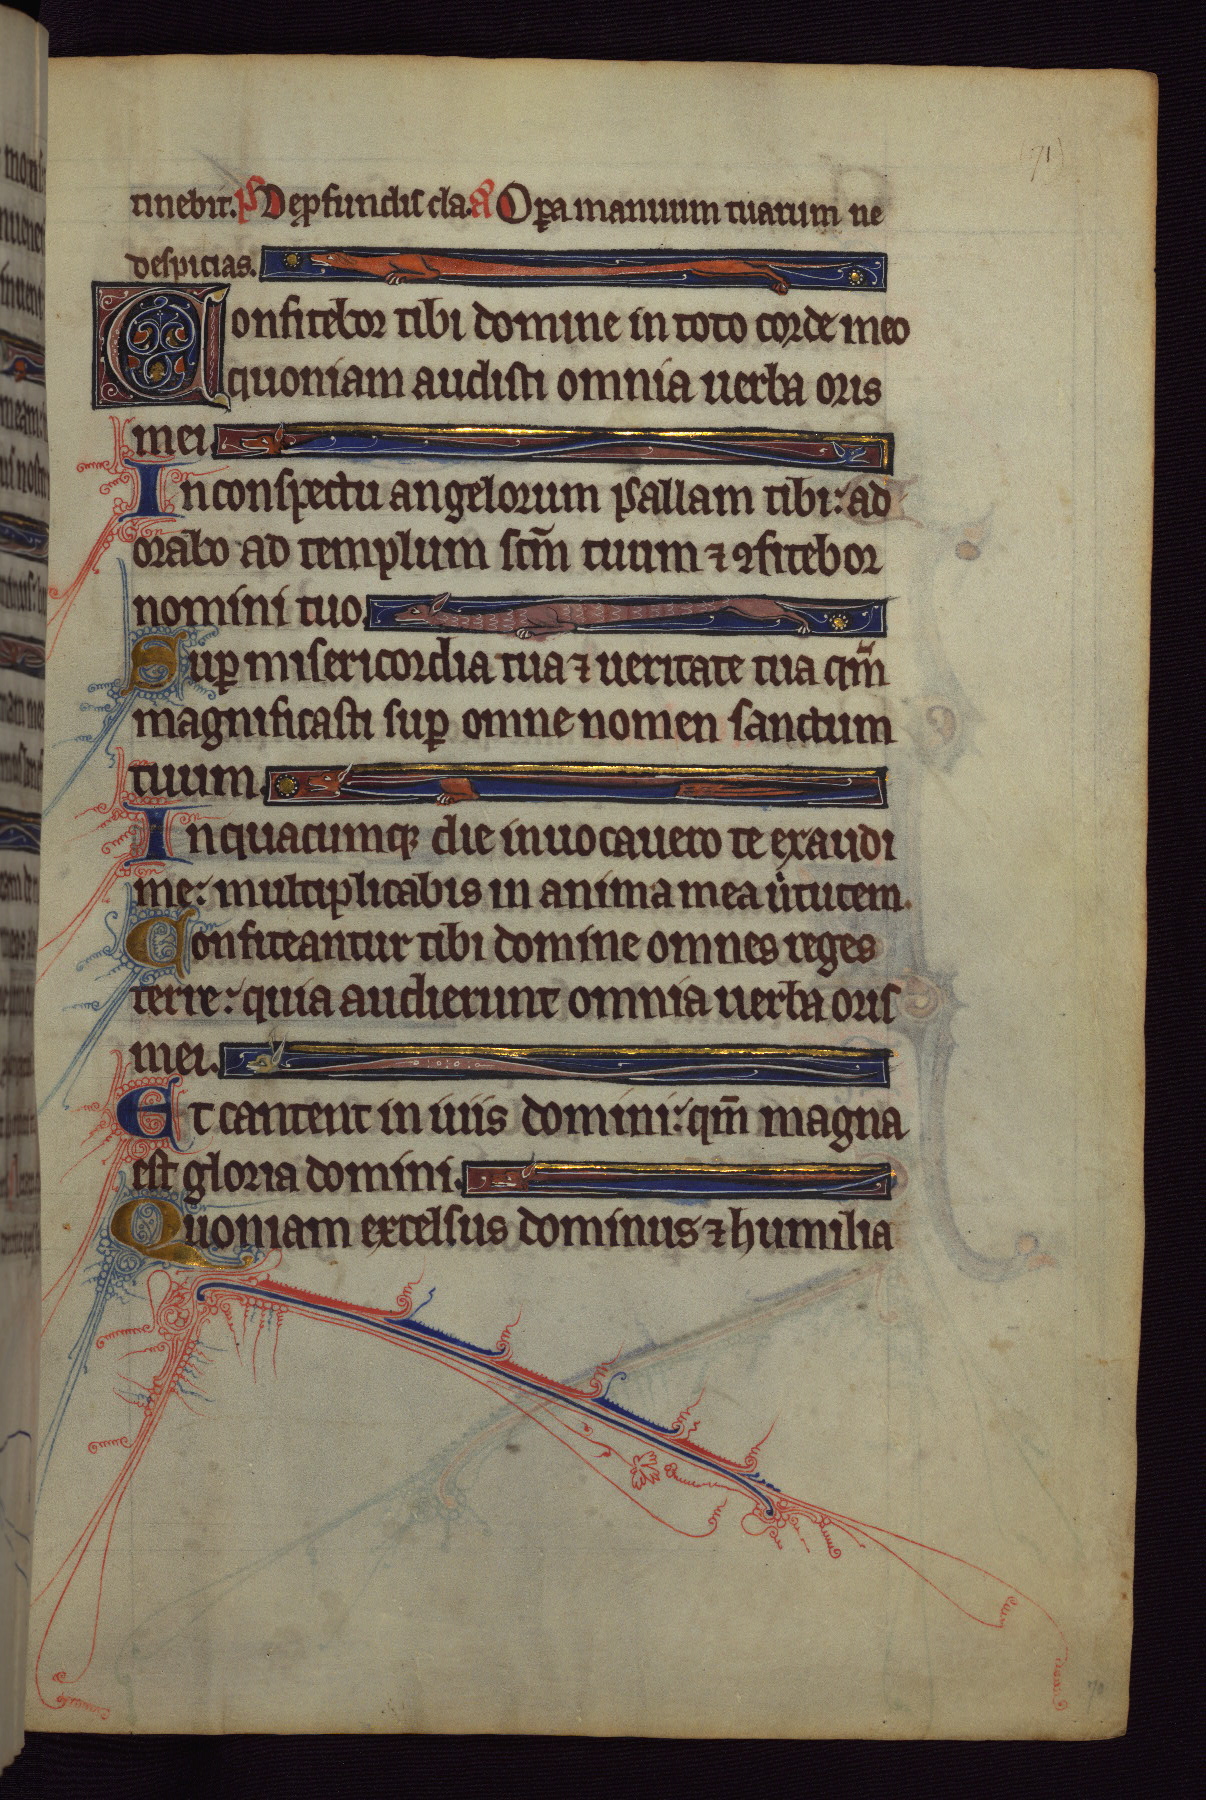 (71)
tinebit. ps De ꝓfundis cla. a Oꝑa manuum tuarum ne
despicias.
Confitebor tibi domine in toto corde meo
quoniam audisti omnia uerba oris
mei.
In conspectu angelorum psallam tibi: ad
orabo ad templum scm̄ tuum ⁊ ꝯfitebor
nomini tuo.
Suꝑ misericordia tua ⁊ ueritate tua qm̄
magnificasti suꝑ omne nomen sanctum
tuum.
In quacumqꝫ die inuocauero te exaudi
me: multiplicabis in anima mea uͥtutem.
Confiteantur tibi domine omnes reges
terre: quia audierunt omnia uerba oris
mei.
Et cantent in uiis domini: qm̄ magna
est gloria domini.
Quoniam excelsus dominus ⁊ humilia
70